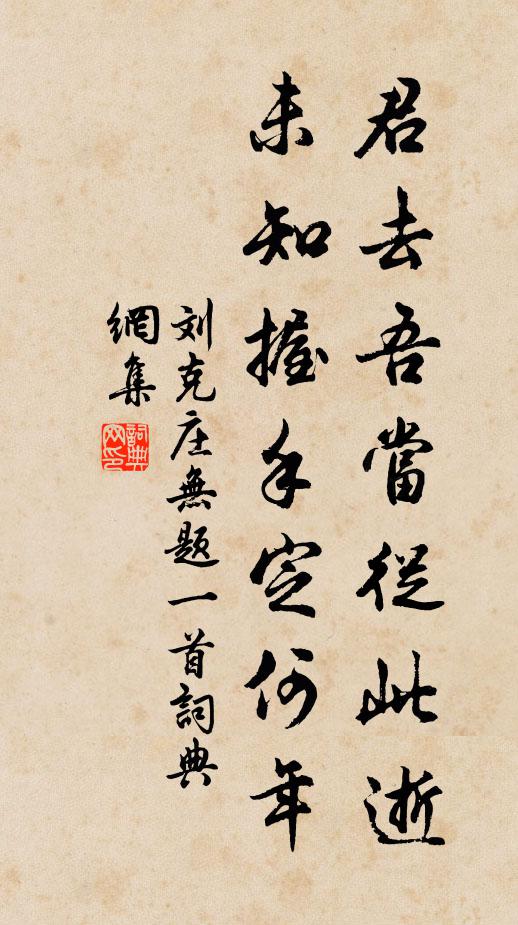 君去吾當從此逝
未知握手定何年
刘克庄無题一首詞典
網集
詞典
网印